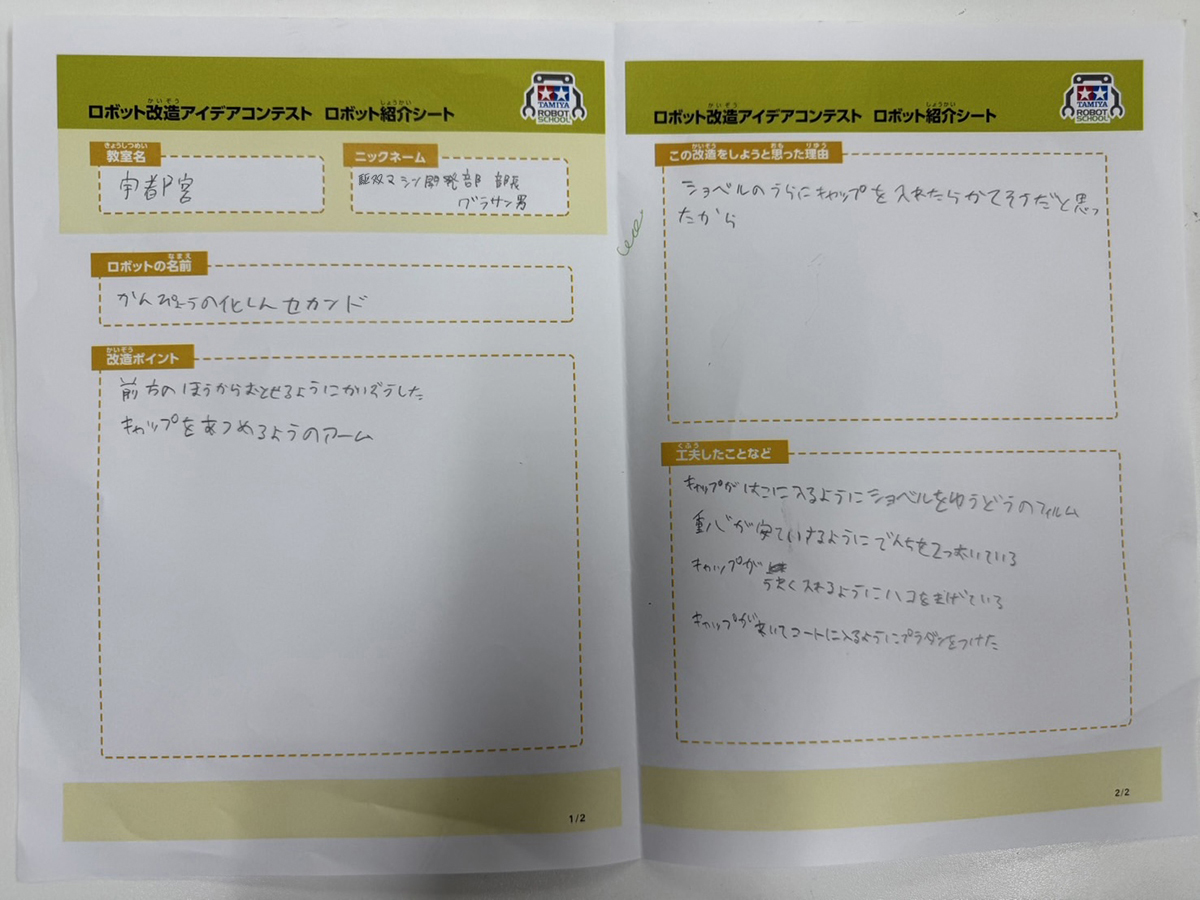 ロボット改造アイデアコンテスト ロボット紹介シート
かいぞう
しょうかい
TAMIYA
ROBOT
SCHOOL
きょうしつめい
教室名
宇都宮
ニックネーム
無双マシン開発部 部長
グラサン男
なまえ
ロボットの名前
かんぴょうの化しんセカンド
かいぞう
改造ポイント
前方のほうからおとせるようにかいぞうした
キャップをあつめるようのアーム
1/2
ロボット改造アイデアコンテスト ロボット紹介シート
かいぞう
しょうかい
TAMIYA
ROBOT
SCHOOL
かいぞう おも りゆう
この改造をしようと思った理由
ショベルのうらにキャップを入れたらかてそうだと思っ
たから
くふう
工夫したことなど
キャップがはこに入るようにショベルをゆうどうのフィルム
重心が安ていするようにでんちを2つおいている
キャップが
う
く入れるようにハコをまげている
キャップが
いてコートに入るようにプラダンをつけた
2/2